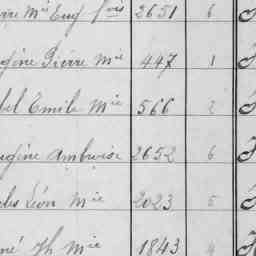 rre Mie Eug fois 2651 6
gène Pierre Mie 447 1
bel Emile Mie 566 2
ugène Ambroise 2652 6
les Léon Mie 2023 5
né Jh Mie 1843 4